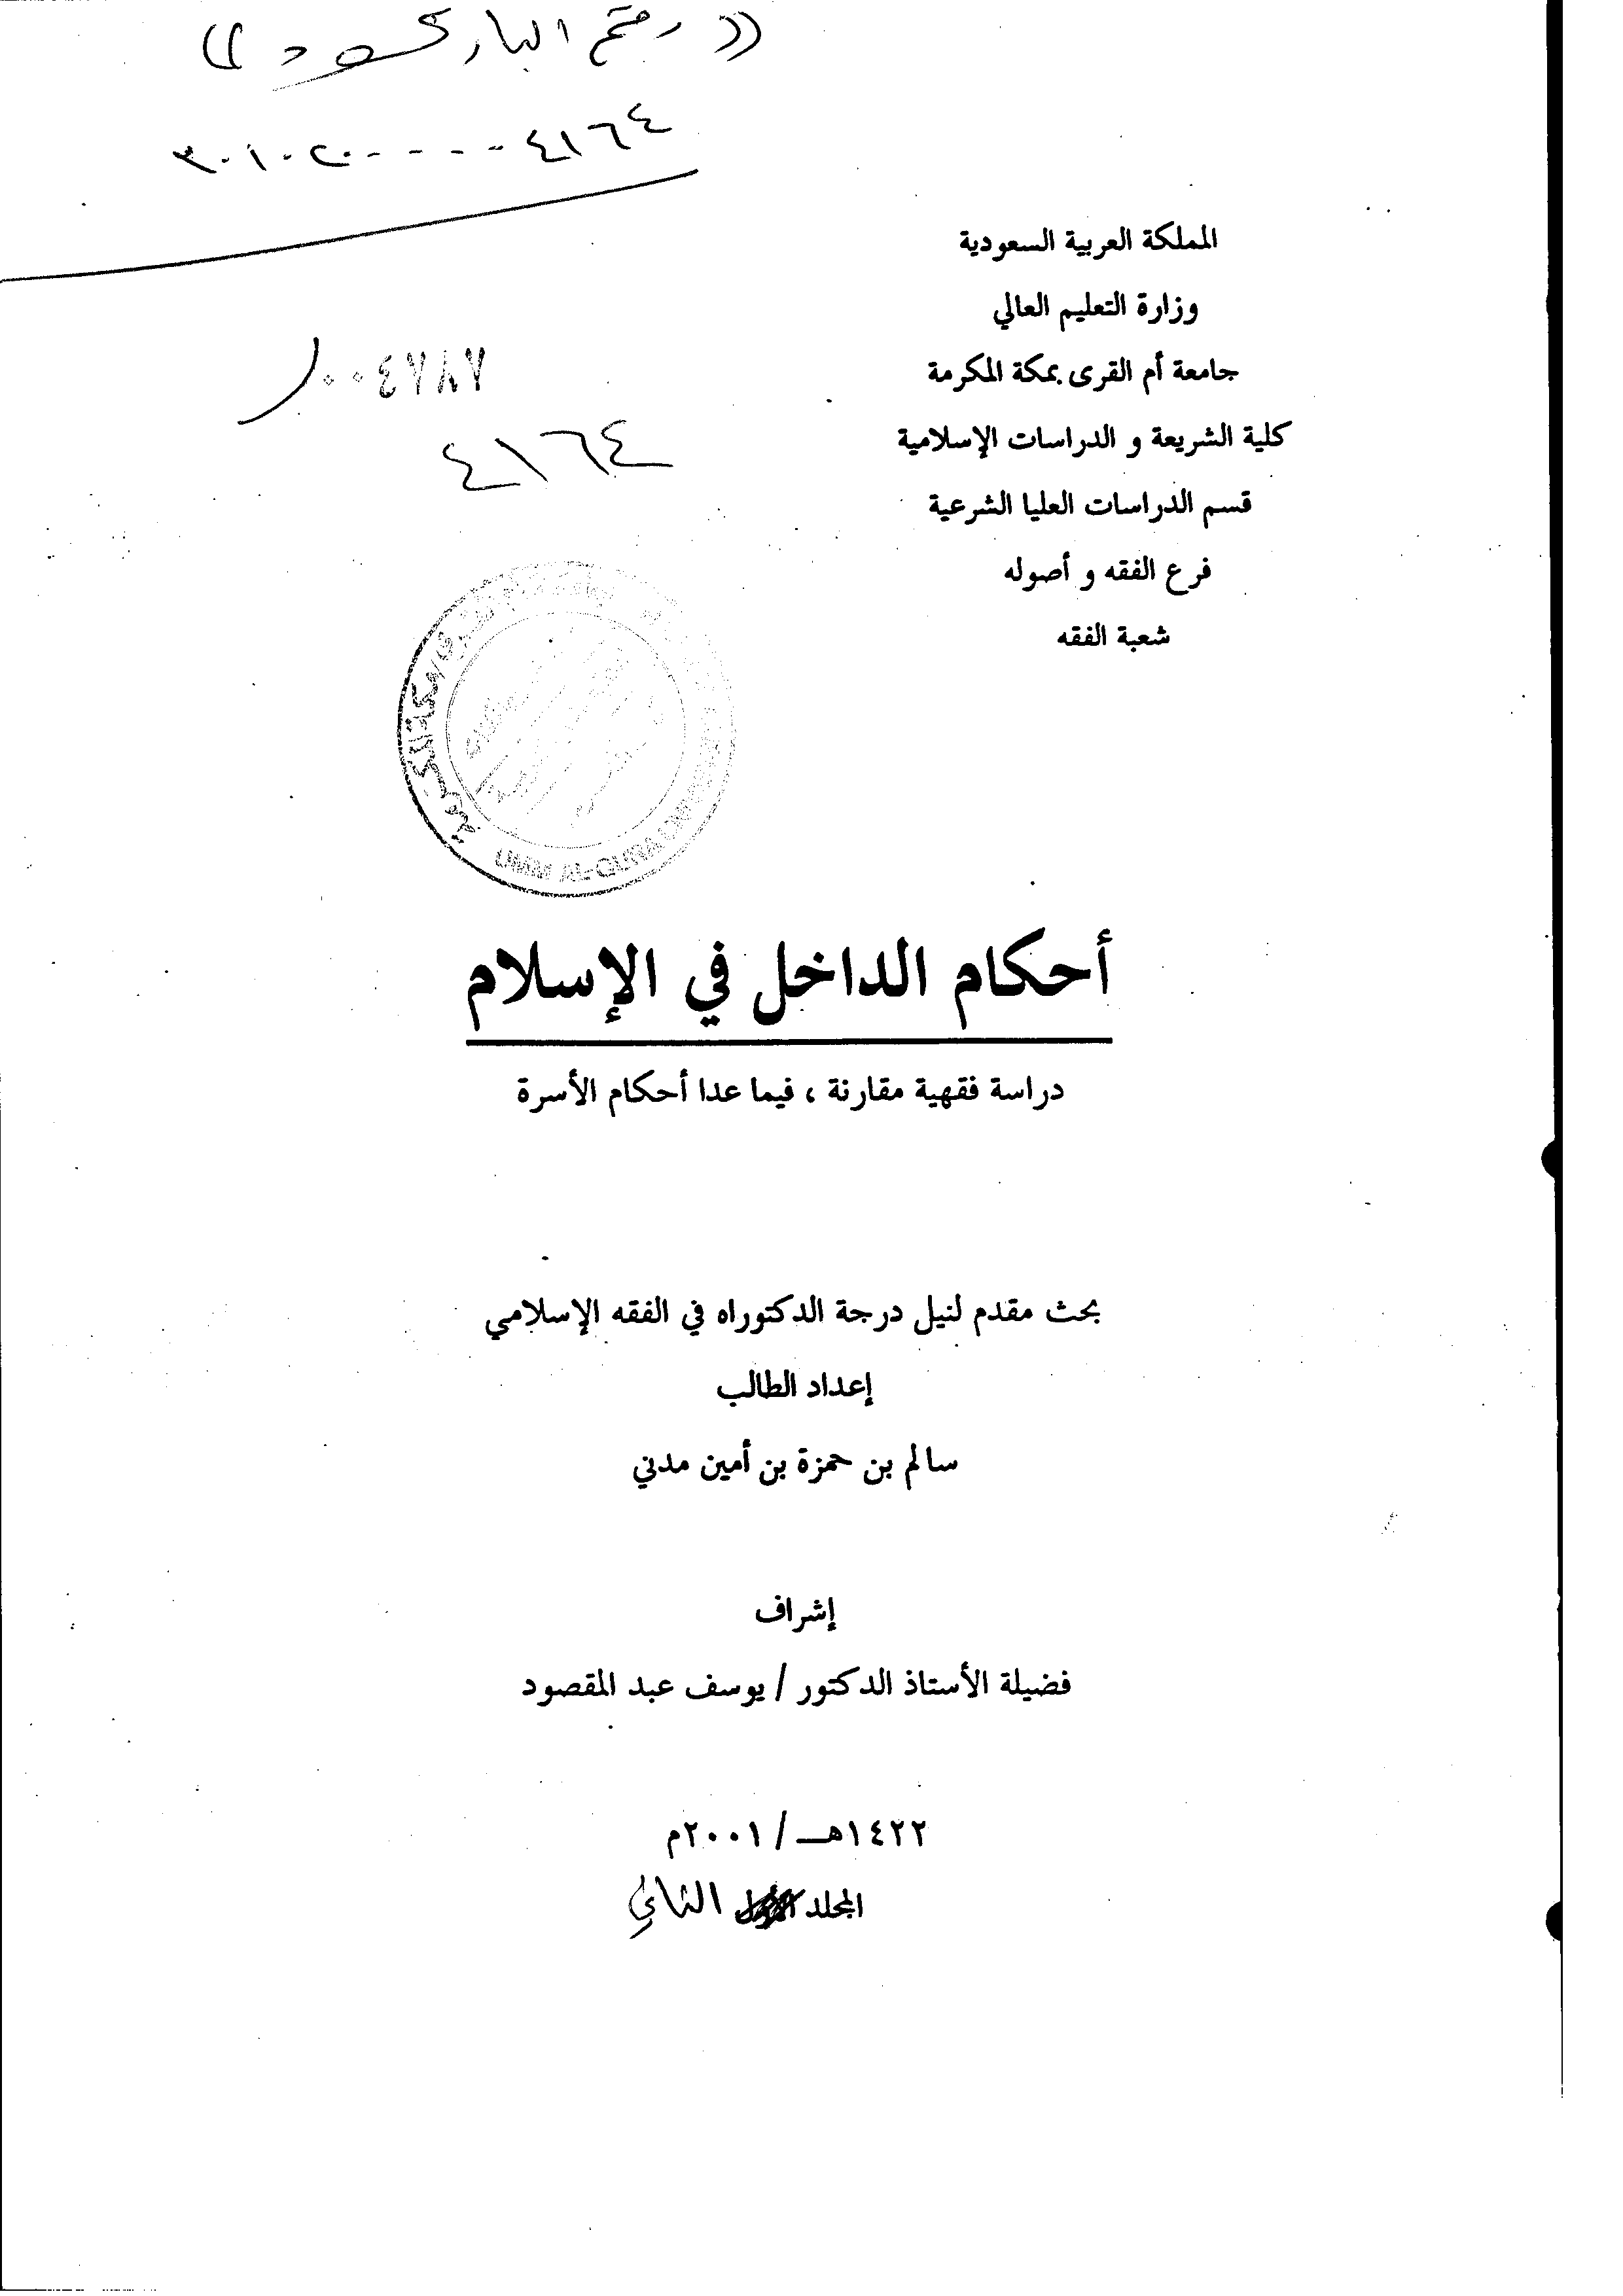 (( رقم الباركود ))
٣٠١٠٢٠٠٠٠٠٤١٦٤
المملكة العربية السعودية
وزارة التعليم العالي
جامعة أم القرى بمكة المكرمة
كلية الشريعة و الدراسات الإسلامية
قسم الدراسات العليا الشرعية
فرع الفقه و أصوله
شعبة الفقه
٠٠٤٧٨٧
٤١٦٤
UMM AL-QURA UNIVERSITY
أحكام الداخل في الإسلام
دراسة فقهية مقارنة ، فيما عدا أحكام الأسرة
بحث مقدم لنيل درجة الدكتوراه في الفقه الإسلامي
إعداد الطالب
سالم بن حمزة بن أمين مدني
إشراف
فضيلة الأستاذ الدكتور / يوسف عبد المقصود
١٤٢٢هـ / ٢٠٠١م
المجلد الثاني